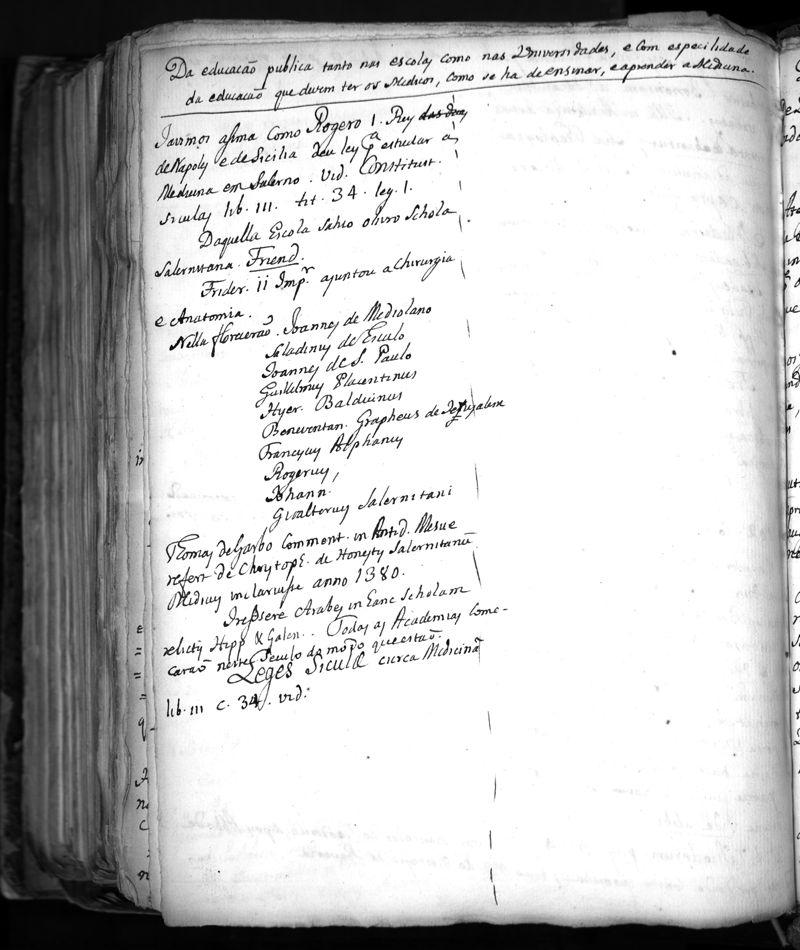 Da educacão publica tanto nas escolas como nas Universidades, e com especilidade
da educacão que devem ter os Medicos, como se ha de ensinar, e aprender a Medicina.
asima como Rogero I. Rey das duas
de Napoly e de Sicilia deu ley pª estudar a
Medicina em Salerno. Vid. Constitut.
siculas lib. III. tit. 34. leg. 1.
Daquella Escola sahio o livro Schola
Salernitana. Friend.
Frider. ii Impr ajuntou a Chirurgia
e Anatomia.
Nella florcerão. Joannes de Mediolano
Saladinus de Esculo
Joannes de S. Paulo
Guilelmus Placentinus
Hyer. Balduinus
Beneventan. Grapheus de Jerusalem
Francyscus Alphanus
Rogerius,
Johann.
Gualterus Salernitani
Thomas de Garbo Comment. in Antid. Mesue
refert de Chrystopf. de Honestys Salernitanū
Medicus inclaruisse anno 1380.
Irepsere Arabes in Eanc Scholam
relictis Hipp & Galen.. Todas as Academias come-
carão neste seculo do modo que estão.
Leges Siculæ circa Medicinã
lib. III c. 34. vid.